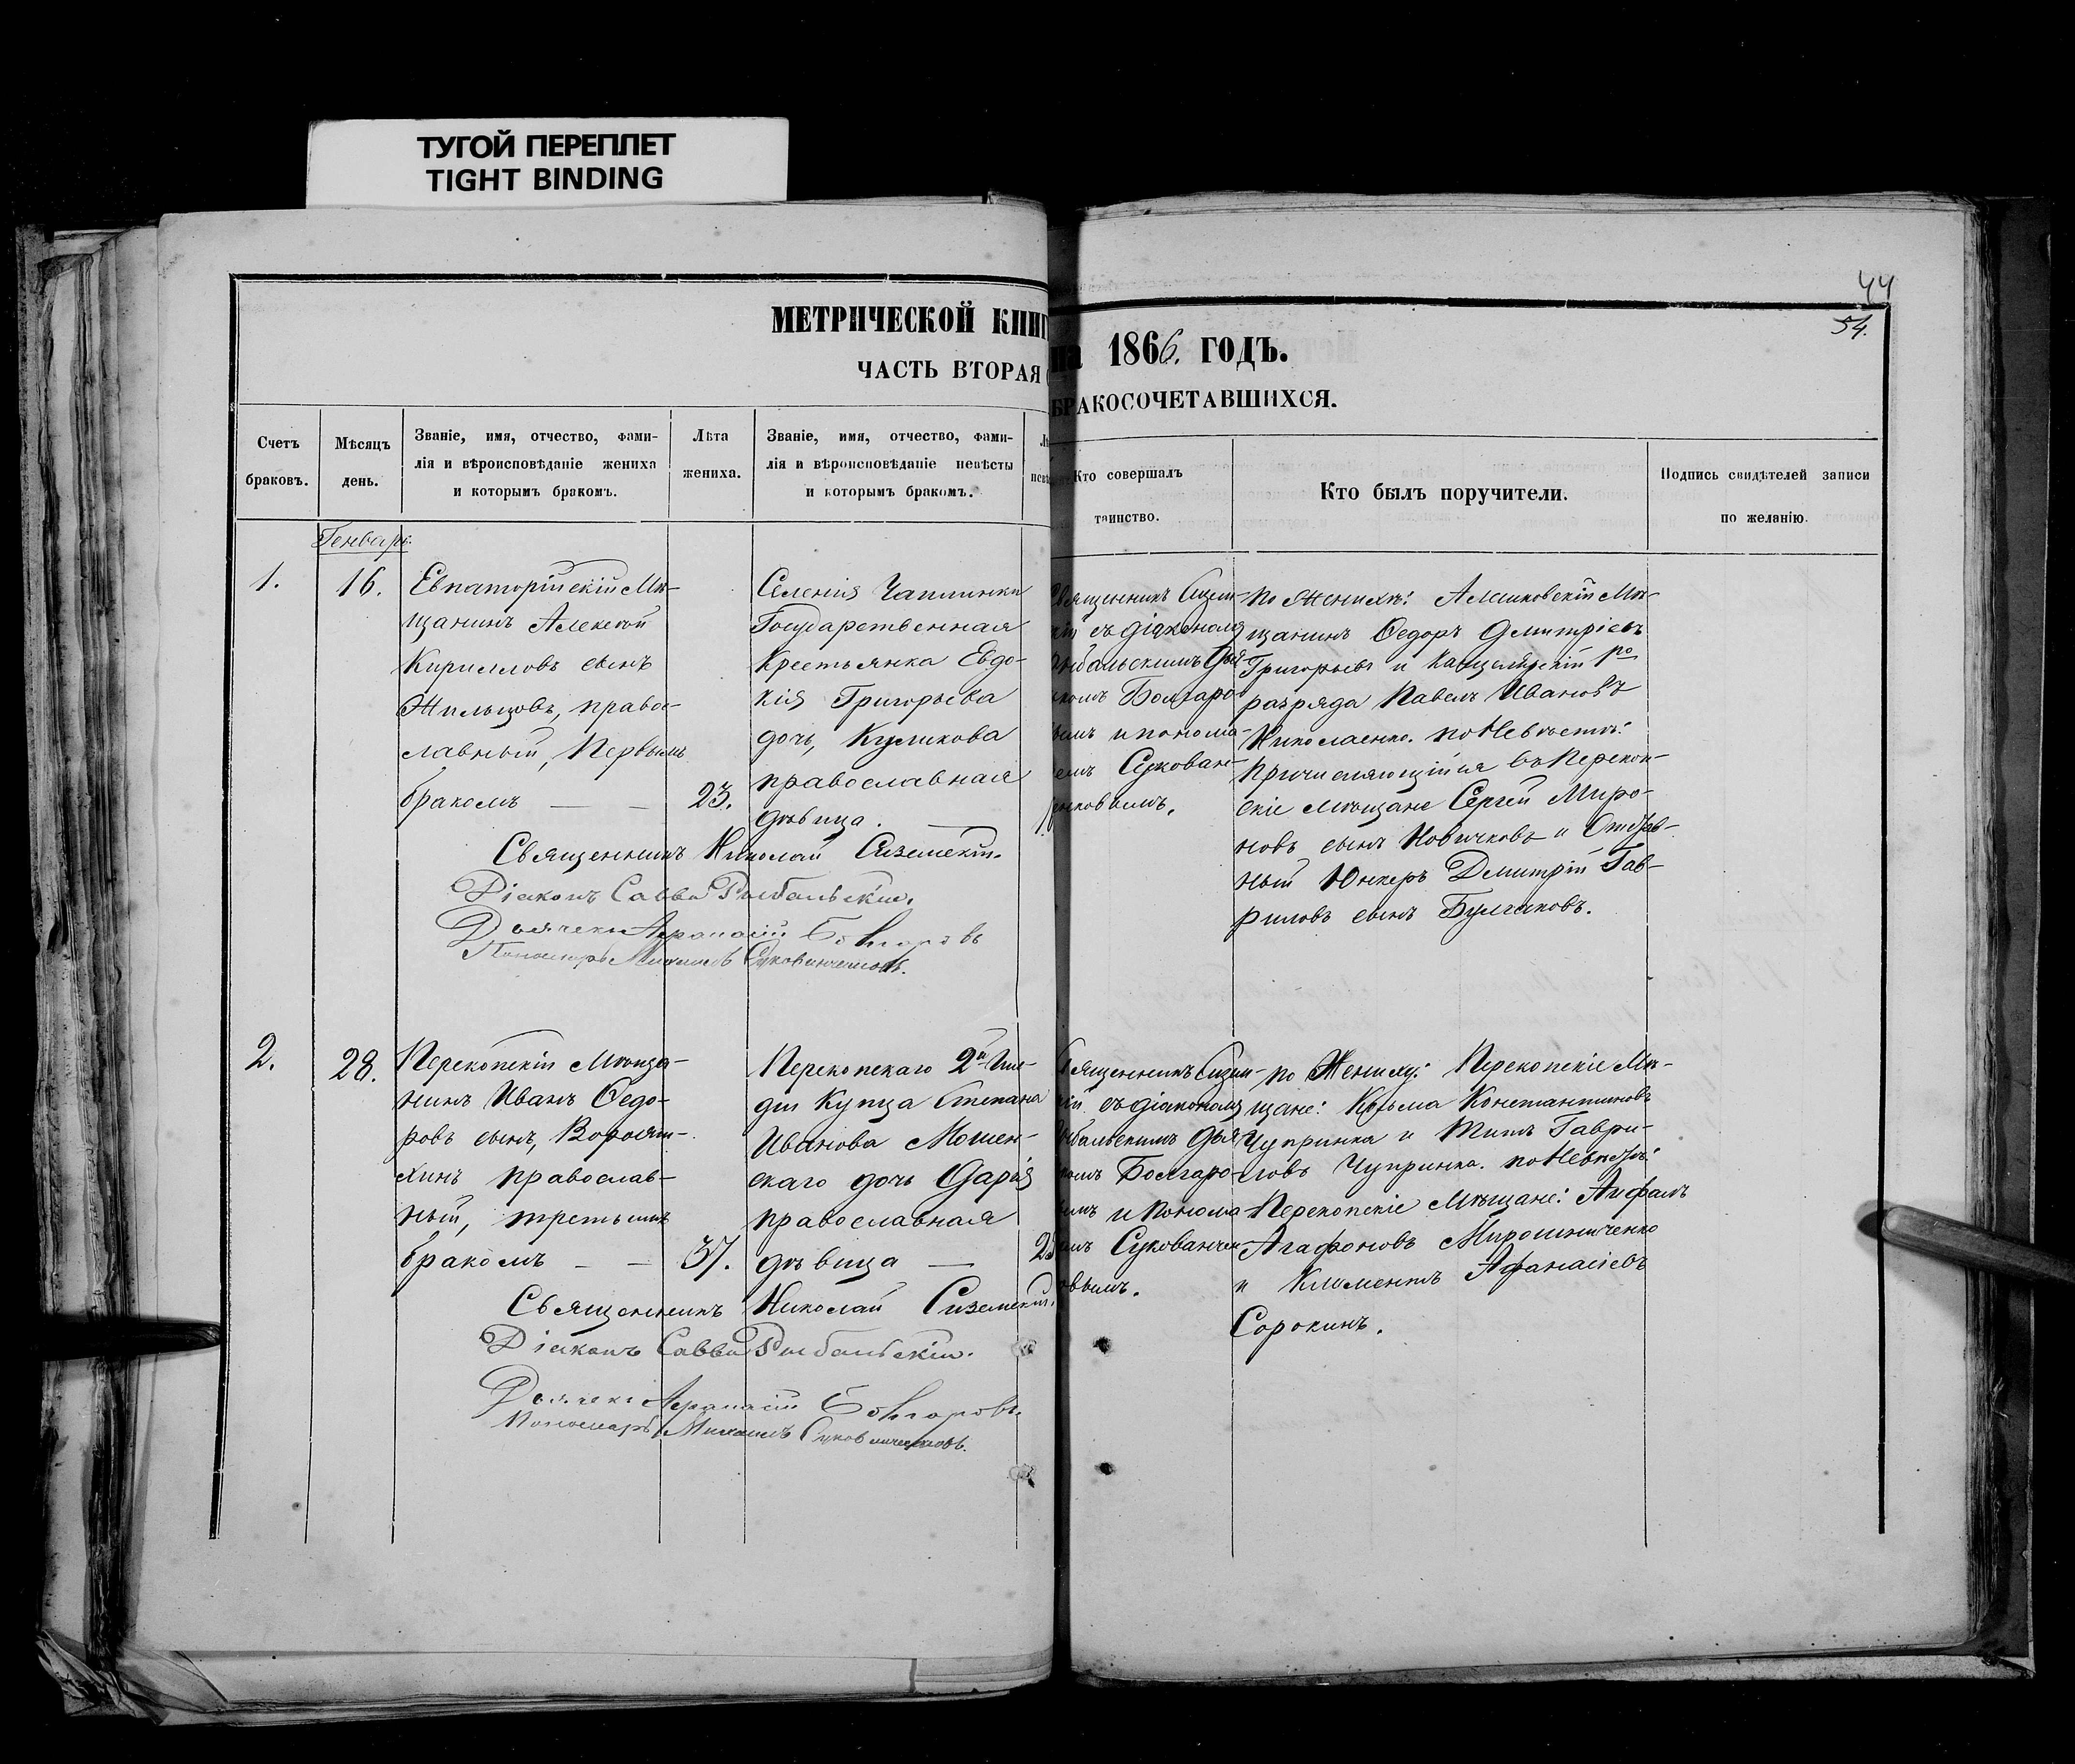 ТУГОЙ ПЕРЕПЛЕТ
TIGHT BINDING
44
54.
МЕТРИЧЕСКОЙ КНИГ
на 1866. ГОДЪ.
ЧАСТЬ ВТОРАЯ
БРАКОСОЧЕТАВШИХСЯ.
Счетъ
браковъ.
Мѣсяцъ
день.
Званіе, имя, отчество, фами-
лія и вѣроисповѣданіе жениха
и которымъ бракомъ.
Лѣта
жениха.
Званіе, имя, отчество, фами-
лія и вѣроисповѣданіе невѣсты
и которымъ бракомъ.
Кто совершалъ
таинство.
Кто былъ поручители.
Подпись свидѣтелей записи
по желанію.
Генварь.
1.
16.
Евпаторійскій Мѣ-
щанинъ Алексѣй
Кирилловъ сынъ
Жильцовъ, право-
славный, Первымъ
бракомъ
23.
Селенія Чаплинки
Государственная
Крестьянка Евдо-
кія Григорьева
дочь, Куликова
православная
дѣвица.
Священникъ Сизем-
кій съ діакономъ
Рыбальскимъ Дья-
комъ Болгаро-
вымъ и понома-
Сукован-
ченковымъ.
по Женихѣ: Алешковскій Мѣ-
щанинъ Ѳедоръ Дмитріевъ
Григорьевъ и Канцелярскій 1го
разряда Павелъ Ивановъ
Николаенко. по Невѣстѣ:
Причисляющіися въ Перекоп-
скіе мѣщане Сергѣй Миро-
новъ сынъ Новичковъ и Отстав-
ный Юнкеръ Дмитрій Гав-
риловъ сынъ Булгаковъ.
Священникъ Николай Сиземскій.
Діаконъ Савва Рыбальскій.
Дьячекъ Афанасій Болгаровъ
Пономарь Михаилъ Суковинченковъ.
2.
28.
Перекопскій Мѣща-
нинъ Иванъ Ѳедо-
ровъ сынъ,
хинъ православ-
ный, третьимъ
бракомъ
37.
Перекопскаго 2й Гил-
діи Купца Степана
Иванова Мошен-
скаго дочь Дарія
православная
дѣвица
Священникъ Сизем-
кій съ діакономъ
Рыбальскимъ Дья-
комъ Болгаро-
вымъ и Понома-
Сукованчен-
ковымъ.
по Жениху: Перекопскіе Мѣ-
щане: Козьма Константиновъ
Чупринка и Титъ Гаври-
ловъ Чупринка. по Невѣстѣ:
Перекопскіе Мѣщане:
Агафоновъ Мирошниченко
и Климентъ Афанасіевъ
Сорокинъ.
Священникъ Николай Сиземскій.
Діаконъ Савва Рыбальскій.
Дьячекъ Афанасій Болгаровъ.
Пономарь Михаилъ Суковинченковъ.